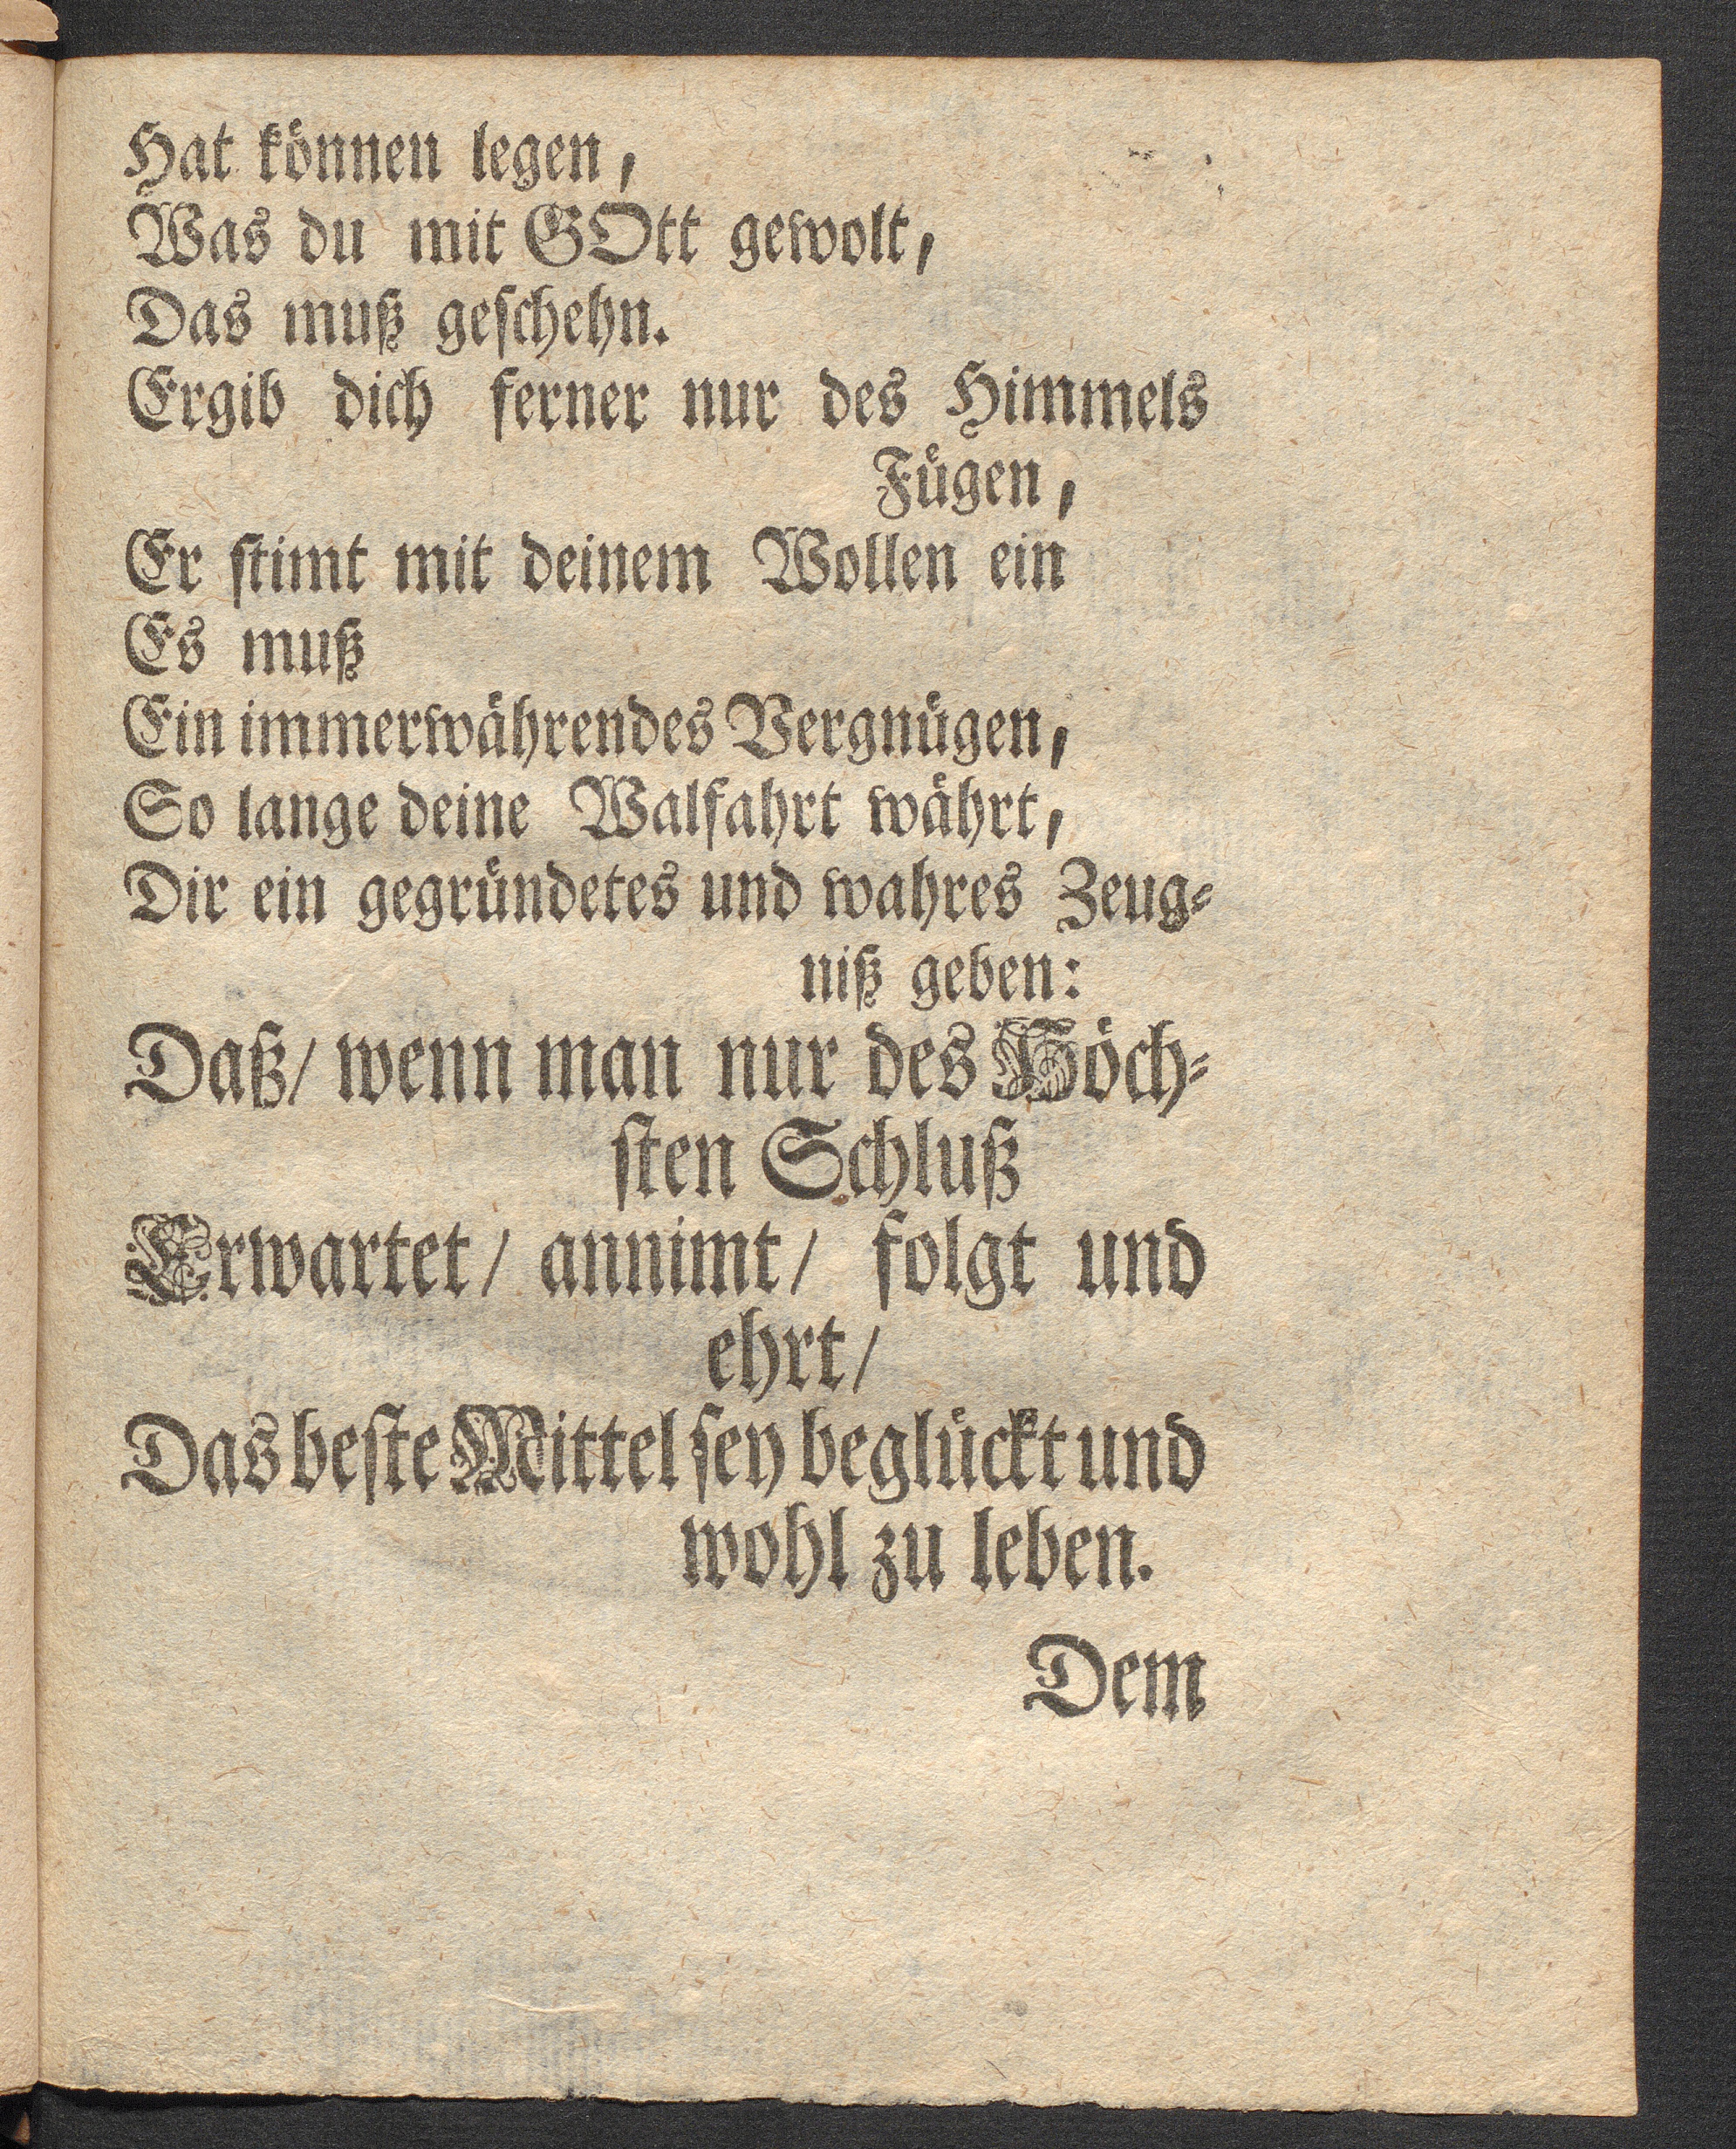 Hat können legen,
Was du mit GOtt gewolt,
Das muß geschehn.
Ergib dich ferner nur des Himmels
Fügen,
Er stimt mit deinem Wollen ein
Es muß
Ein immerwährendes Vergnügen,
So lange deine Walfahrt währt,
Dir ein gegründetes und wahres Zeug-
niß geben:
Daß/ wenn man nur des Höch-
sten Schluß
Erwartet/ annimt/ folgt und
ehrt/
Das beste Mittel sey beglückt und
wohl zu leben.
Dem